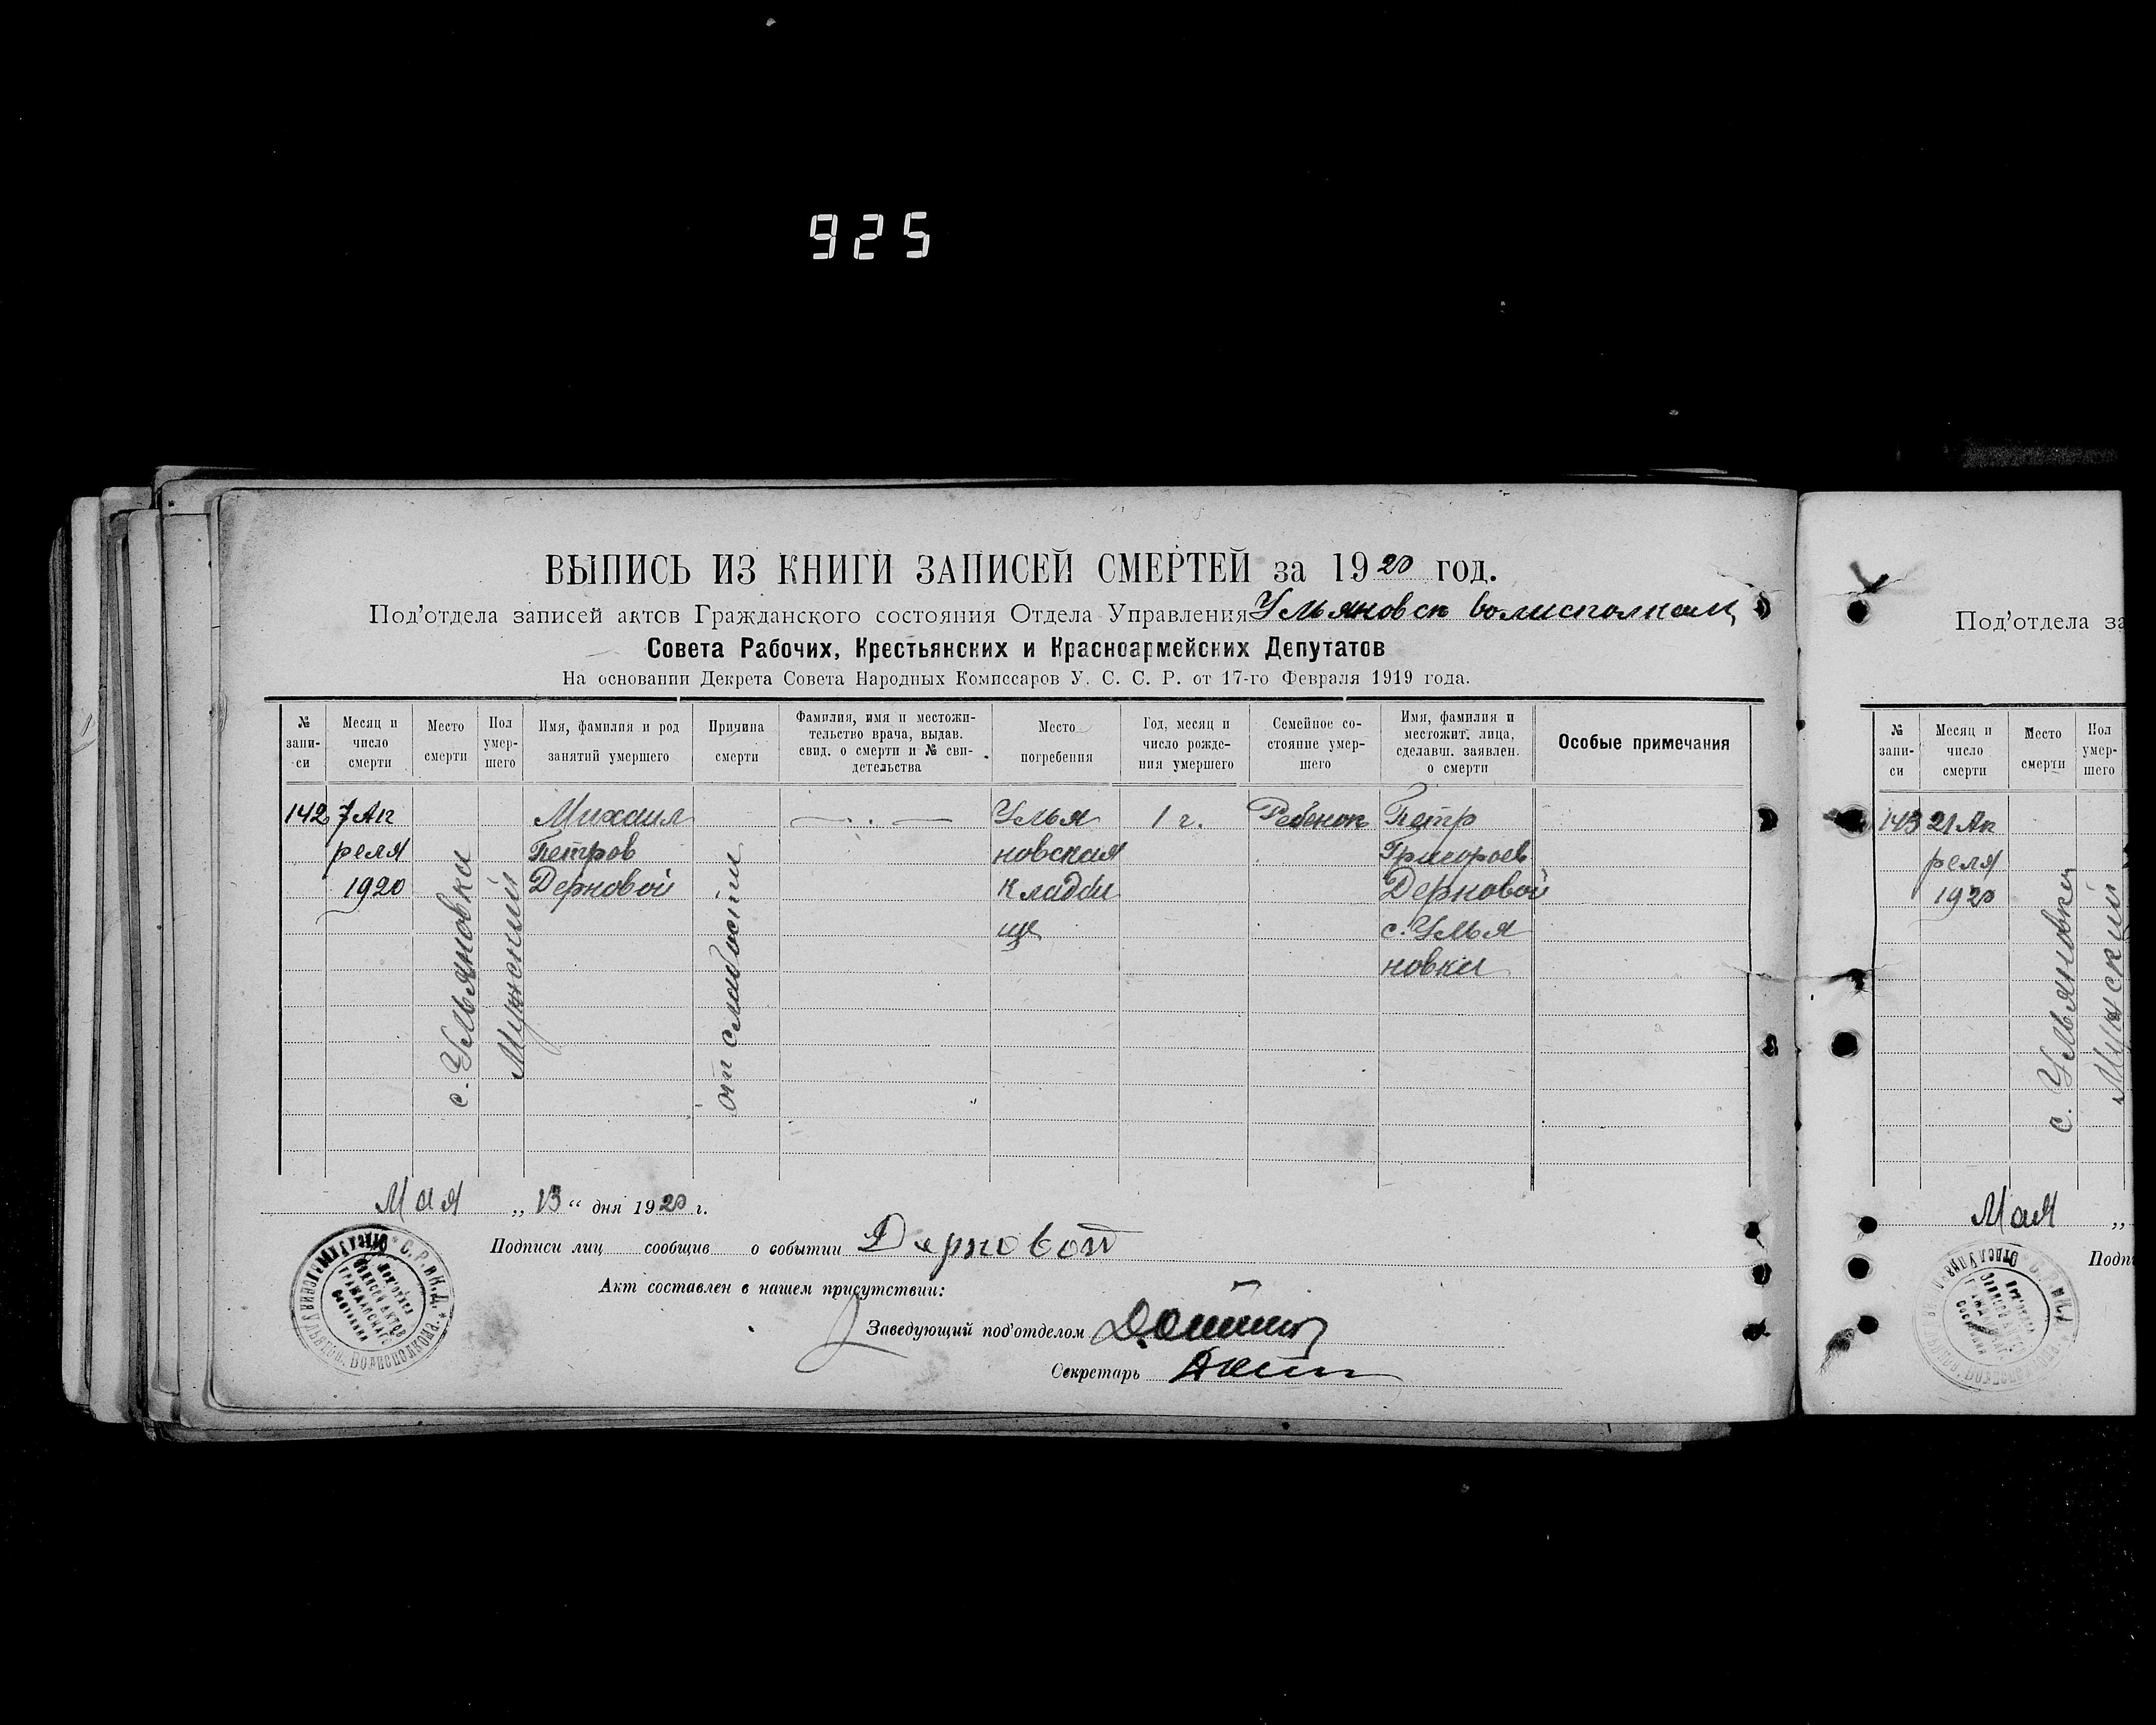 925
ВЫПИСЬ ИЗ КНИГИ ЗАПИСЕЙ СМЕРТЕЙ за 1920 год.
Под'отдела записей актов Гражданского состояния Отдела Управления Ульяновск волисполком
Совета Рабочих, Крестьянских и Красноармейских Депутатов
На основании Декрета Совета Народных Комиссаров У. С. С. Р. от 17-го Февраля 1919 года.
№ запи-си
Месяц и число смерти
Место смерти
Пол умер-шего
Имя, фамилия и род занятий умершего
Причина смерти
Фамилия, имя и местожи-тельство врача, выдав. свид. о смерти и № сви-детельства
Место погребения
Год, месяц и число рожде-ния умершего
Семейное со-стояние умер-шего
Имя, фамилия и местожит. лица, сделавш. заявлен. о смерти
Особые примечания
142
7 Ап
реля
1920
с. Ульяновка
Мужский
Михаил
Петров
Дерновой
от слабости
Улья
новская
кладби
ще
1 г.
Ребенок
Петр
Григороев
Дерновой
с. Улья
новки
Мая „ 13 “ дня 1920 г.
Подписи лиц сообщив о событии Дерновой
Акт составлен в нашем присутствии:
Заведующий под'отделом
Секретарь
Под'отдела за
№ запи-си
Месяц и число смерти
Место смерти
Пол умер-шего
143
21 Ап
реля
1920
с. Ульяновка
Мужский
Мая „
Подп